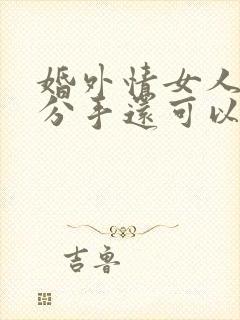 婚外情女人
分手還可以
吉魯